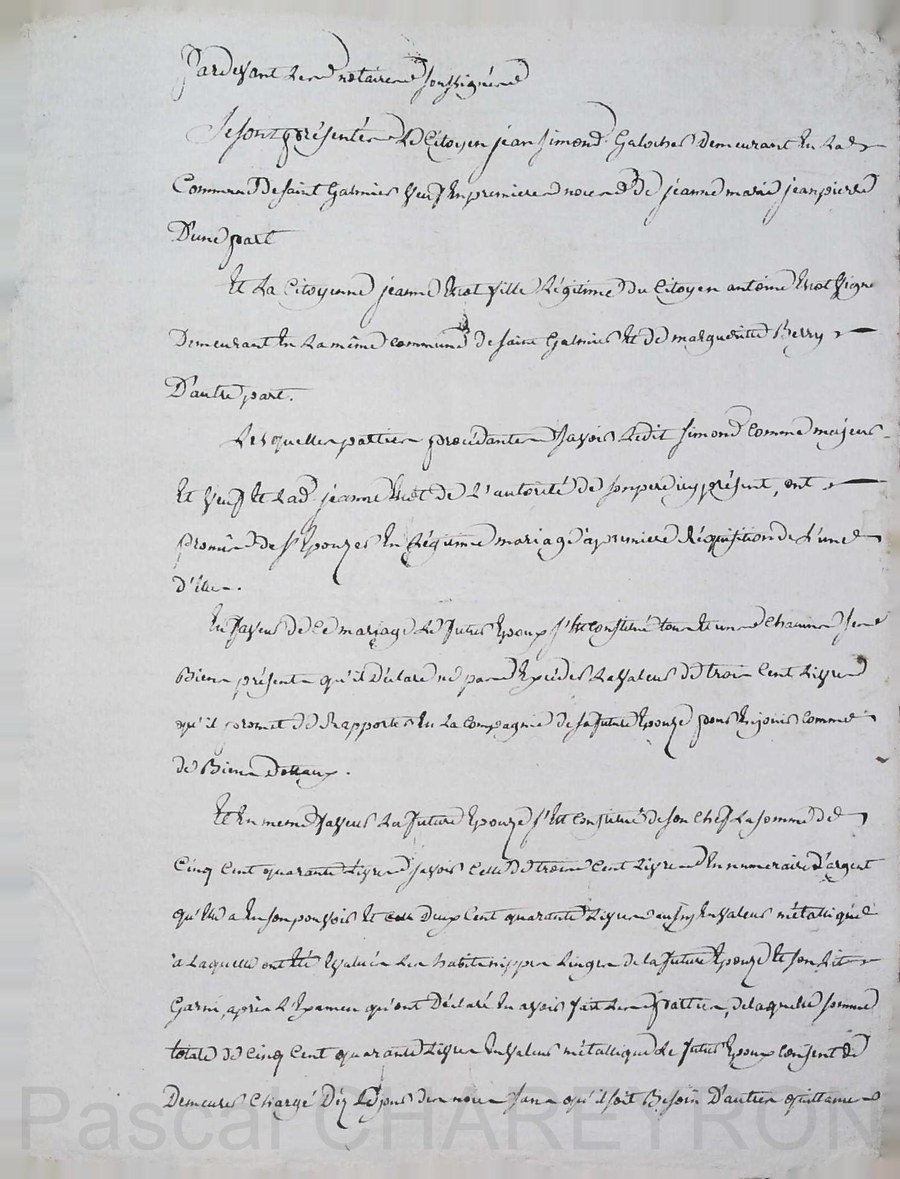 Pardevant les notaires soussignés
Se sont présentés le Citoyen jean simond Galoches demeurant en la
Commune de saint Galmier Veuf en premiere noces de jeanne marie jeanpierre
D'une part
Et La Citoyenne jeanne fille Légitime du Citoyen antoine Vigne
Demeurant en la même commune de saint Galmier et de marguerite Berry
D'autre part.
Lesquelles parties procédantes savoir Ledit simond comme majeur
et veuf et Lad. jeanne de L'autorité de son pere icy présent, ont
promis de s'Epouzer en Légitime mariage à premiere Réquisition de L'une
d'Elles.
En faveur de ce mariage Le futur Epoux s'est constitué tous et uns chacuns ses
Biens présents qu'il déclare ne pas Excéder La valeur de trois cent Livres
qu'il promet de Rapporter en La compagnie de sa future Epouze pour En jouir comme
de Biens dotaux.
Et en meme faveur La future Epouze s'est constituée de son chef La somme de
Cinq cent quarante Livres savoir celle de trois cent Livres En numeraire d'argent
qu'Elle a en son pouvoir et celle deux cent quarante Livres aussy En valeur métallique
à Laquelle ont été Evalués Les habits nippes Linges de la future Epouze et son Lit
Garni, après L'Examen qu'ont Déclaré en avoir fait Les parties, de laquelle somme
totale de cinq cent quarante Livres En valeur métallique Le futur Epoux consent de
Demeurer Chargé Dèz Le jour des noces sans qu'il soit Besoin D'autres quittances
Pascal CHAREYRON